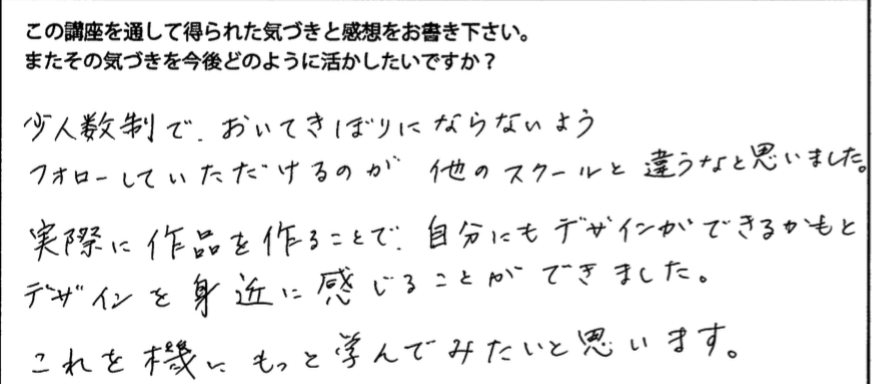 この講座を通して得られた気づきと感想をお書き下さい。
またその気づきを今後どのように活かしたいですか？
少人数制で、おいてきぼりにならないよう
フォローしていただけるのが 他のスクールと違うなと思いました。
実際に作品を作ることで、自分にもデザインができるかもと
デザインを身近に感じることができました。
これを機にもっと学んでみたいと思います。